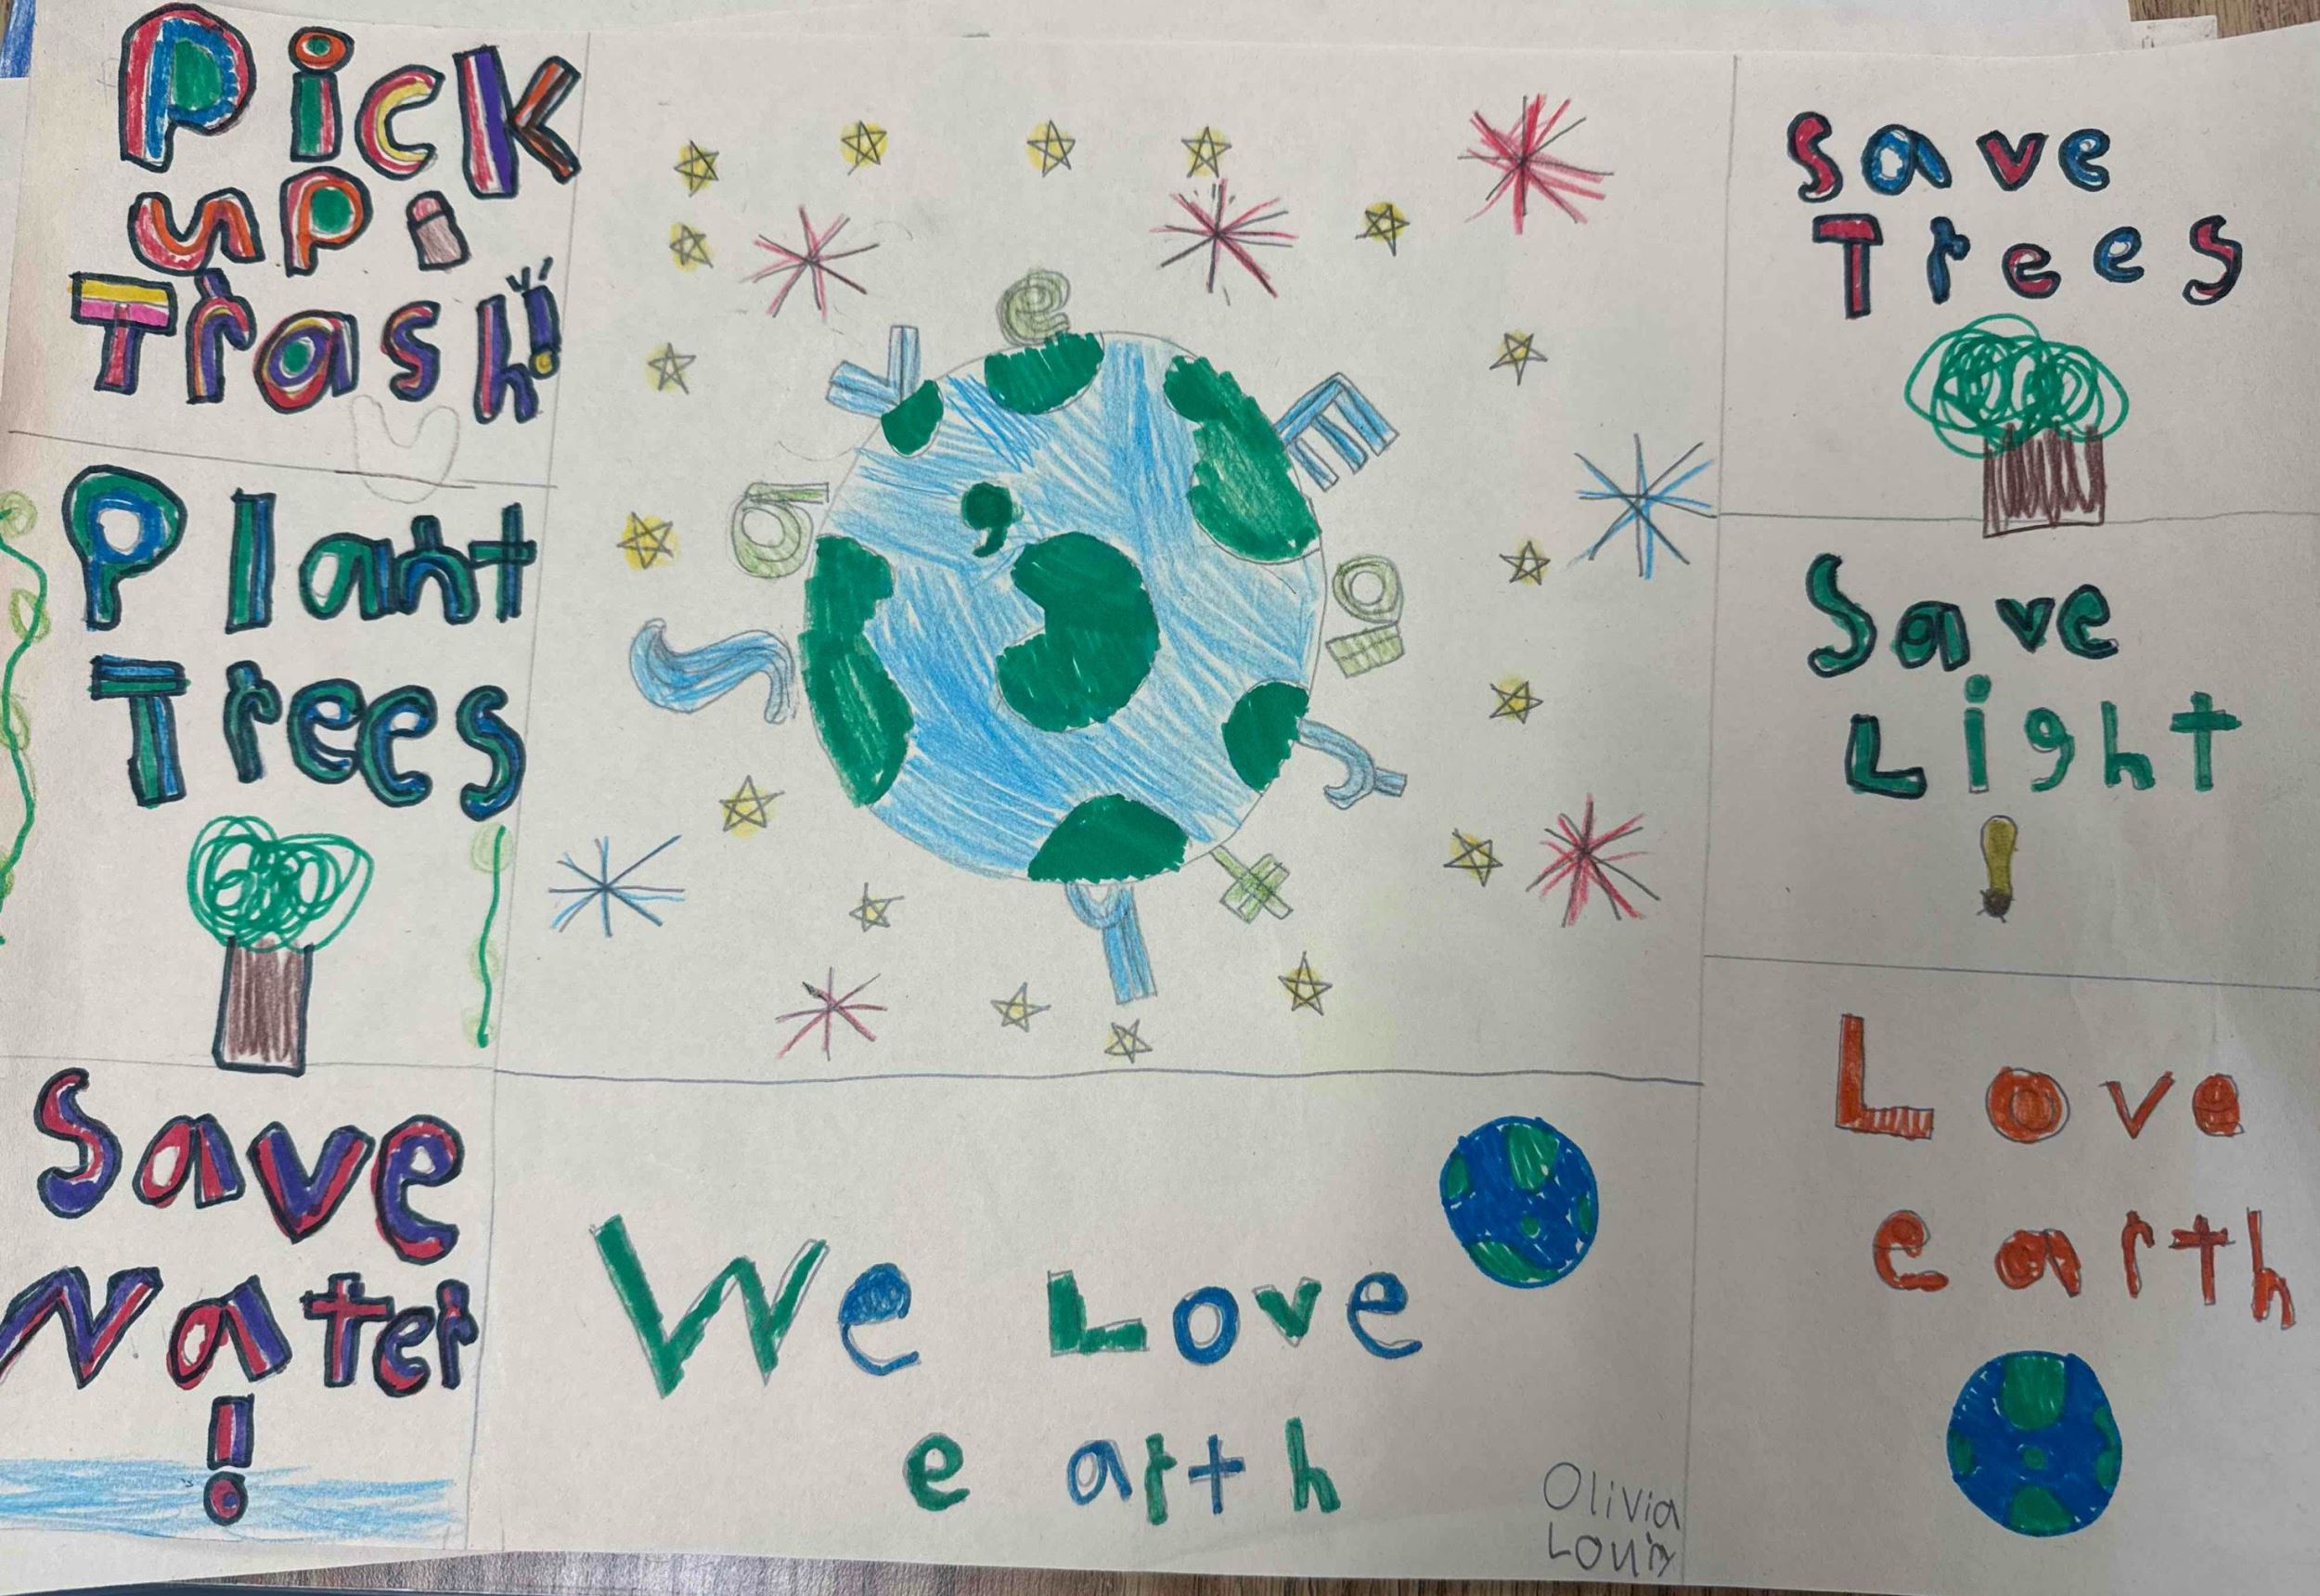 Pick
up
Trash!
Plant
Trees
Save
Water
!
Save Earth
We Love
earth
Olivia
Save
Trees
Save
Light
Love
earth